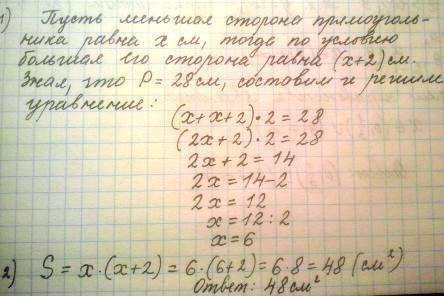 1) Пусть меньшая сторона прямоуголь-
ника равна x см, тогда по условию
большая его сторона равна (x+2) см.
Зная, что P = 28 см, составим и решим
уравнение:
(x+x+2)·2 = 28
(2x+2)·2 = 28
2x+2 = 14
2x = 14-2
2x = 12
x = 12 : 2
x = 6
2) S = x·(x+2) = 6·(6+2) = 6·8 = 48 (см²)
Ответ: 48 см²